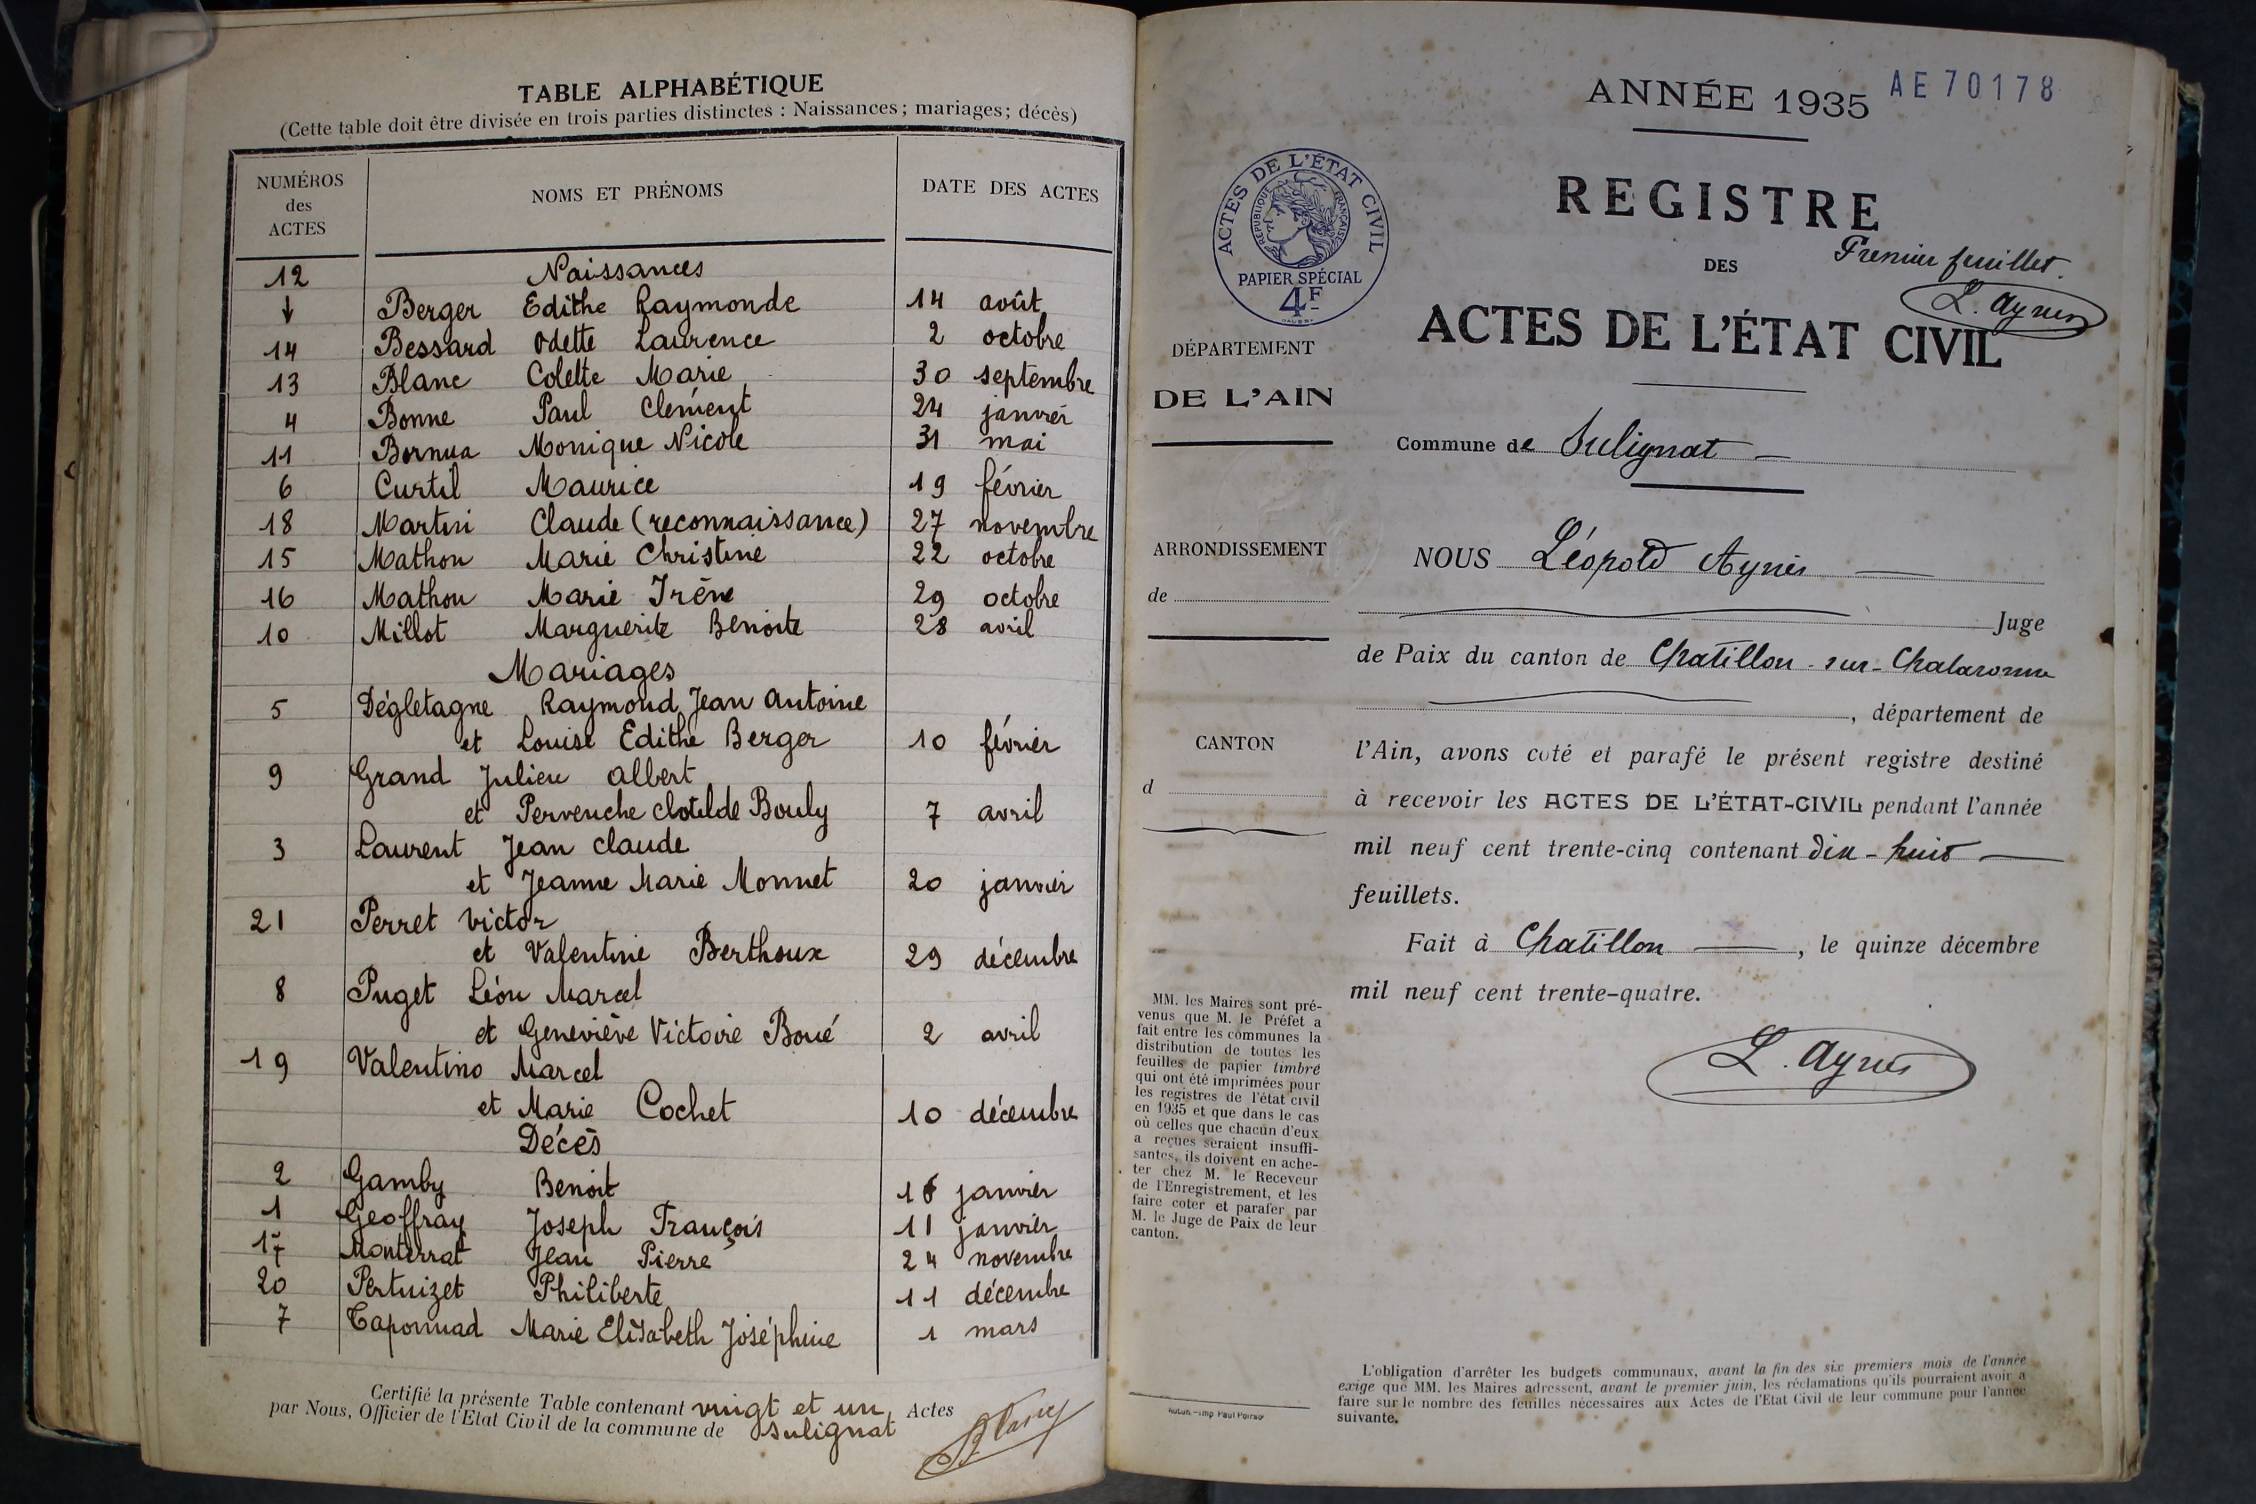 TABLE ALPHABÉTIQUE
(Cette table doit être divisée en trois parties distinctes : Naissances; mariages; décès)
NUMÉROS des ACTES NOMS ET PRÉNOMS DATE DES ACTES
12 Naissances
↓ Berger Edithe Raymonde 14 août
14 Bessard Odette Laurence 2 octobre
13 Blanc Colette Marie 30 septembre
4 Bonne Paul Clément 24 janvier
11 Bornua Monique Nicole 31 mai
6 Curtil Maurice 19 février
18 Martin Claude (reconnaissance) 27 novembre
15 Mathon Marie Christine 22 octobre
16 Mathon Marie Irène 29 octobre
10 Millot Marguerite Benoite 28 avril
Mariages
5 Dégletagne Raymond Jean Antoine
et Louise Edithe Berger 10 février
9 Grand Julien Albert
et Pervenche Clotilde Bouly 7 avril
3 Laurent Jean Claude
et Jeanne Marie Monnet 20 janvier
21 Perret Victor
et Valentine Berthoux 29 décembre
8 Puget Léon Marcel
et Geneviève Victoire Boué 2 avril
19 Valentino Marcel
et Marie Cochet 10 décembre
Décès
2 Gamby Benoit janvier
1 Geoffray Joseph François 11 janvier
17 Monterrat Jean Pierre 24 novembre
20 Pertuizet Philiberte 11 décembre
7 Taponnad Marie Elisabeth Joséphine 1 mars
Certifié la présente Table contenant vingt et un Actes
par Nous, Officier de l'Etat Civil de la commune de Sulignat
ANNÉE 1935 AE 70178
REGISTRE
DES
Premier feuillet.
L. Aynès
ACTES DE L'ÉTAT CIVIL
ACTES DE L'ÉTAT CIVIL
RÉPUBLIQUE FRANÇAISE
PAPIER SPÉCIAL
4F
DÉPARTEMENT
DE L'AIN
Commune de Sulignat
ARRONDISSEMENT
de
CANTON
d
NOUS Léopold Aynès
Juge
de Paix du canton de Chatillon-sur-Chalaronne
, département de
l'Ain, avons coté et parafé le présent registre destiné
à recevoir les ACTES DE L'ÉTAT-CIVIL pendant l'année
mil neuf cent trente-cinq contenant dix-huit
feuillets.
Fait à Chatillon, le quinze décembre
mil neuf cent trente-quatre.
L. Aynès
MM. les Maires sont pré-
venus que M. le Préfet a
fait entre les communes la
distribution de toutes les
feuilles de papier timbré
qui ont été imprimées pour
les registres de l'état civil
en 1935 et que dans le cas
où celles que chacun d'eux
a reçues seraient insuffi-
santes, ils doivent en ache-
ter chez M. le Receveur
de l'Enregistrement, et les
faire coter et parafer par
M. le Juge de Paix de leur
canton.
L'obligation d'arrêter les budgets communaux, avant la fin des six premiers mois de l'année
exige que MM. les Maires adressent, avant le premier juin, les réclamations qu'ils pourraient avoir à
faire sur le nombre des feuilles nécessaires aux Actes de l'Etat Civil de leur commune pour l'année
suivante.